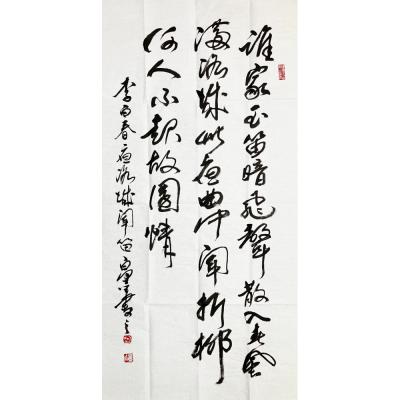 谁家玉笛暗飞聲散入春風
滿洛城此夜曲中聞折柳
何人不起故園情
李白春夜洛城聞笛